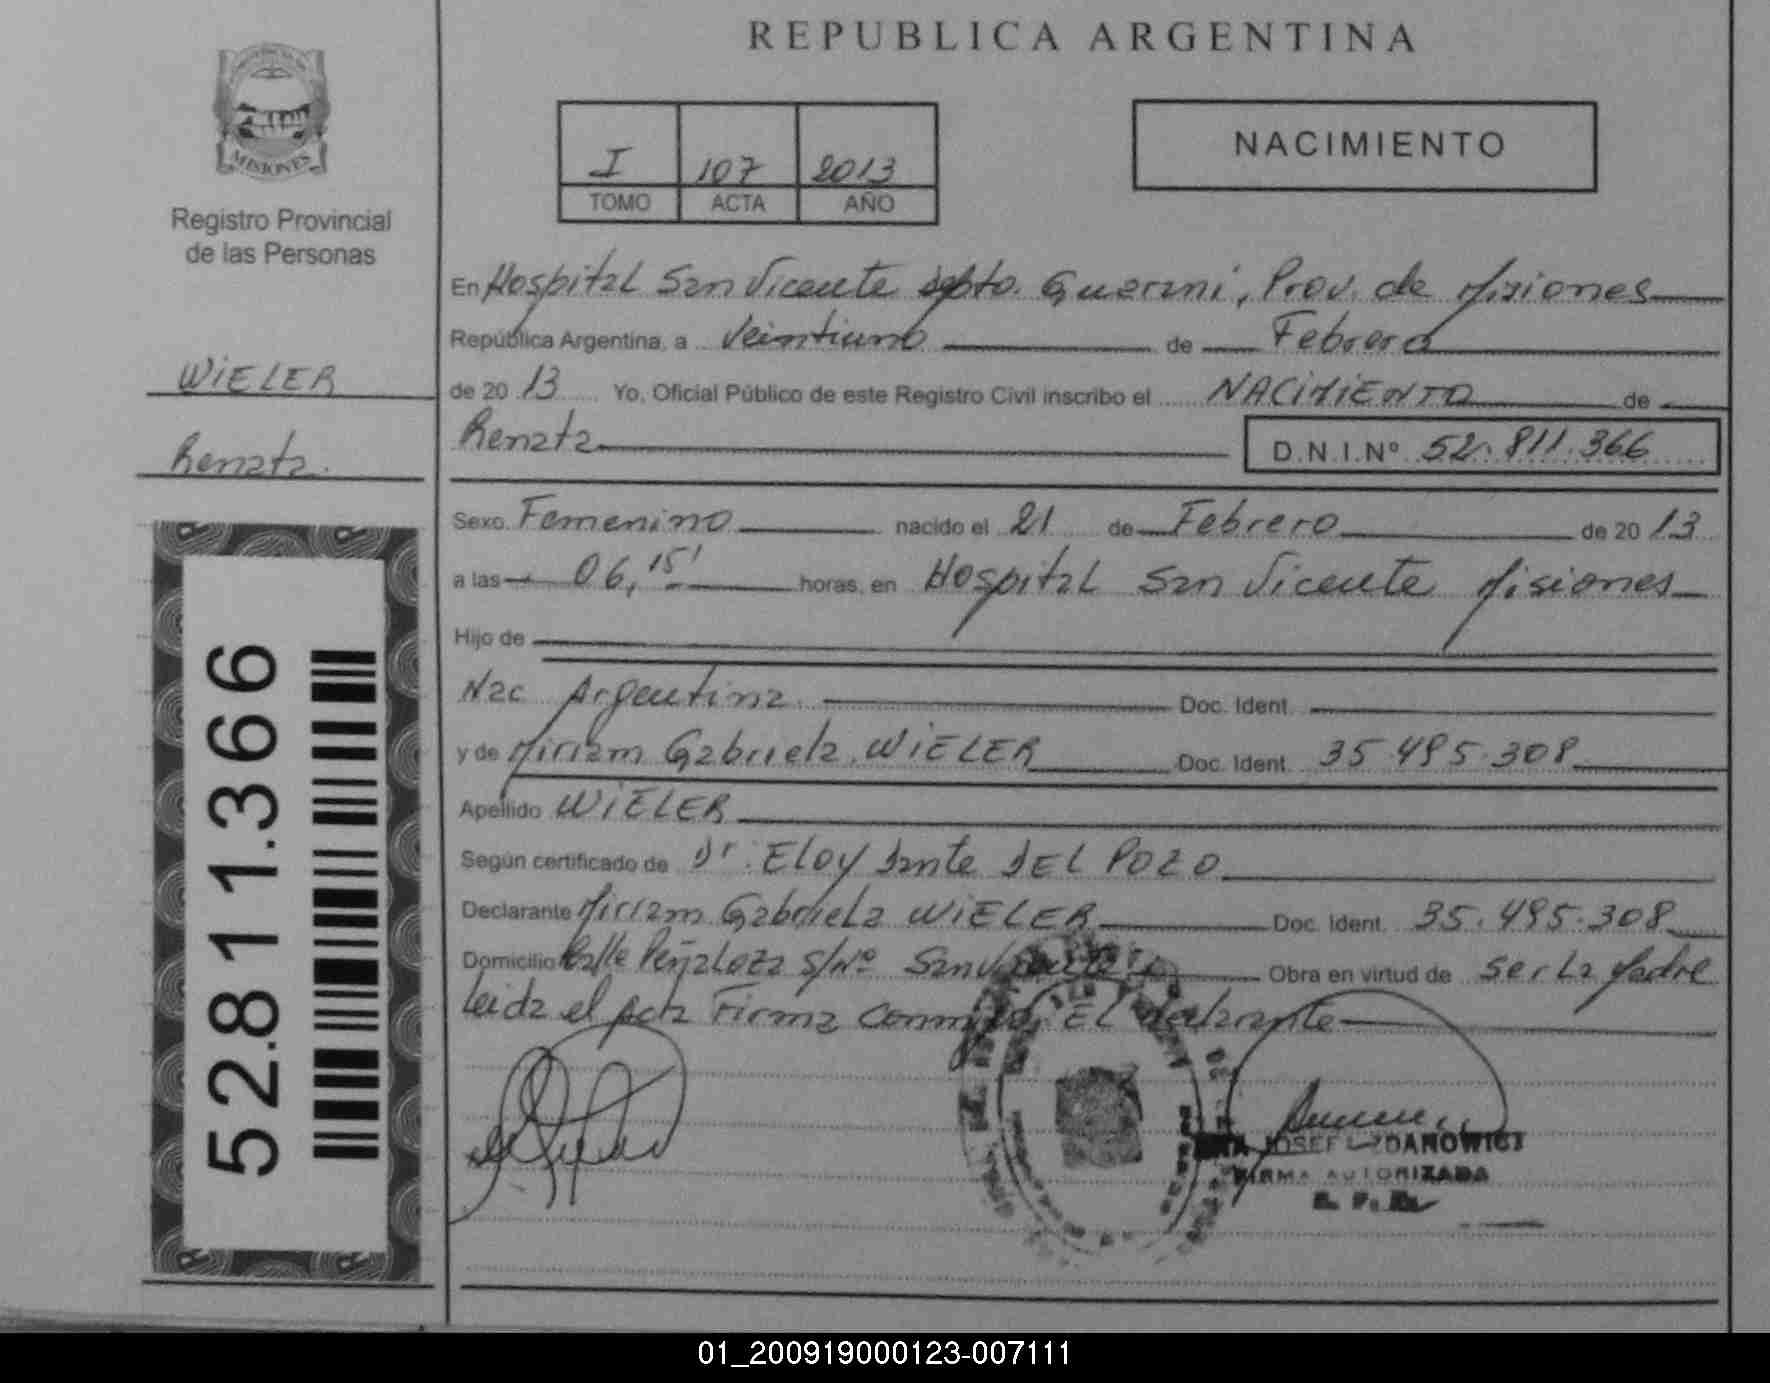 REPUBLICA ARGENTINA
MISIONES
Registro Provincial
de las Personas
I 107 2013
TOMO ACTA AÑO
NACIMIENTO
WIELER
Renata
52.811.366
En Hospital San Vicente Dpto. Guarani, Prov. de Misiones
República Argentina, a Veintiuno de Febrero
de 20 13 Yo, Oficial Público de este Registro Civil inscribo el NACIMIENTO de
Renata D.N.I.Nº 52.811.366
Sexo Femenino nacido el 21 de Febrero de 20 13
a las 06,15' horas, en Hospital San Vicente Misiones
Hijo de
Nac. Argentina Doc. Ident.
y de Miriam Gabriela WIELER Doc. Ident. 35.495.308
Apellido WIELER
Según certificado de Dr. Eloy Dante DEL POZO
Declarante Miriam Gabriela WIELER Doc. Ident. 35.495.308
Domicilio Calle Peñaloza S/Nº San Vicente Obra en virtud de ser la Madre
Leida el Acta Firma conmigo EL declarante
JOSEF
FIRMA AUTORIZADA
01_200919000123-007111